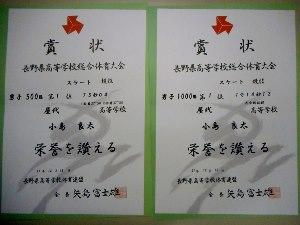 賞状
長野県高等学校総合体育大会
スケート 競技
男子500m 第1位
屋代 高等学校
小島 良太
栄誉を讃える
長野県高等学校体育連盟
会長 矢島富士雄
賞状
長野県高等学校総合体育大会
スケート 競技
男子1000m 第1位
屋代 高等学校
小島 良太
栄誉を讃える
長野県高等学校体育連盟
会長 矢島富士雄